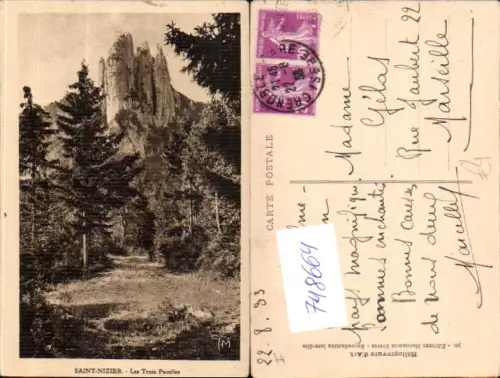 SAINT-NIZIER - Les Trois Pucelles
M
CARTE POSTALE
GARE
GRENOBLE
Madame
Gélas
Rue Jaubert 22
Marseille
22 . 8 . 33
Pays magnifique
sommes enchantés
Bonnes caresses
de nous deux
Marcelle
748664
Héliogravure d'Art
Editions Martinotto Frères - Reproduction interdite